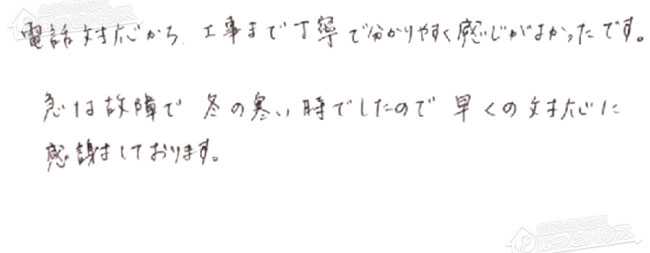 電話対応から、工事まで丁寧で分かりやすく感じがよかったです。
急な故障で 冬の寒い時でしたので 早くの対応に
感謝しております。